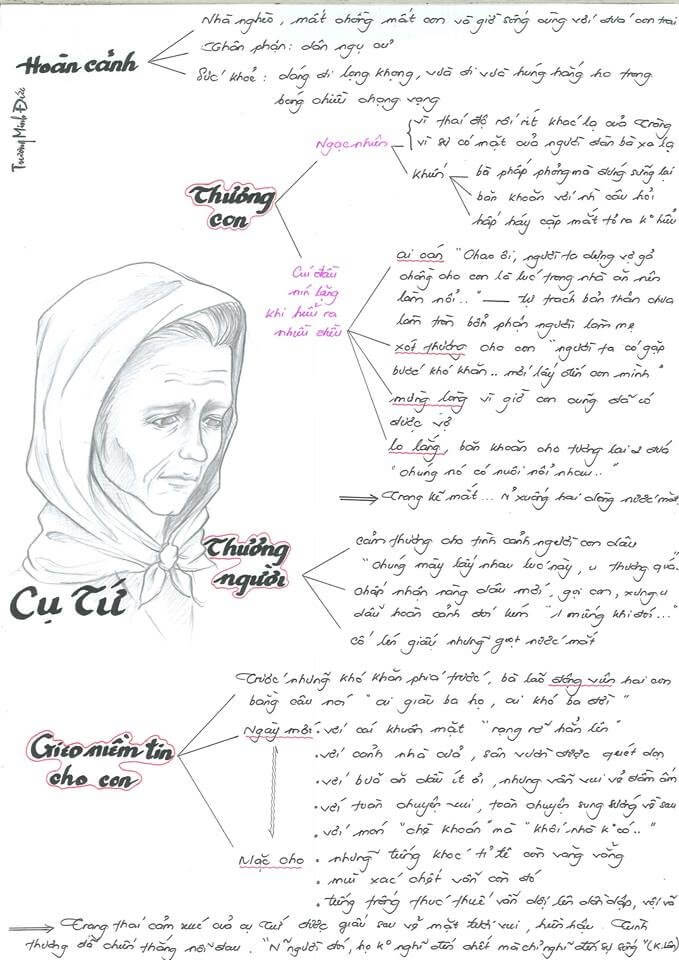 Nhà nghèo, mất chồng mất con và giờ sống cùng với đứa con trai
Thân phận: dân ngụ cư
Hoàn cảnh
Sức khoẻ: dáng đi lọng khọng, vừa đi vừa húng hắng ho trong
bóng chiều chạng vạng
Trương Minh Đức
vì thái độ rối rít khác lạ của Tràng
Ngạc nhiên
vì sự có mặt của người đàn bà xa lạ
khiến
bà phấp phỏng mà đứng sững lại
băn khoăn với nh` câu hỏi
hấp háy cặp mắt tỏ ra k° hiểu
Thương
con
Cúi đầu
nín lặng
khi hiểu ra
nhiều điều
ai oán "Chao ôi, người ta dựng vợ gả
chồng cho con là lúc trong nhà ăn nên
làm nổi.." — tự trách bản thân chưa
làm tròn bổn phận người làm mẹ
xót thương cho con "người ta có gặp
bước khó khăn.. mới lấy đến con mình"
mừng lòng vì giờ con cũng đã có
được vợ
lo lắng, băn khoăn cho tương lai 2 đứa
"chúng nó có nuôi nổi nhau.."
⟹ Trong kẽ mắt... rỉ xuống hai dòng nước mắt
Thương
người
cảm thương cho tình cảnh người con dâu
"chúng mày lấy nhau lúc này, u thương quá.
chấp nhận nàng dâu mới, gọi con, xưng u
dẫu hoàn cảnh đói kém "u mừng khi đó..."
cố lén giấu những giọt nước mắt
Cụ Tứ
Trước những khó khăn phía trước, bà lão động viên hai con
bằng câu nói "ai giàu ba họ, ai khó ba đời"
Gieo niềm tin
cho con
Ngày mới • với cái khuôn mặt "rạng rỡ hẳn lên"
• với cảnh nhà cửa, sân vườn được quét dọn
• với bữa ăn dẫu ít ỏi, nhưng vẫn vui vẻ đầm ấm
• với toàn chuyện vui, toàn chuyện sung sướng về sau
• với món "chè khoán" mà "khối nhà k° có.."
Mặc cho • những tiếng khóc tỉ tê còn vang vẳng
• mùi xác chết vẫn còn đó
• tiếng trống thúc thuế vẫn dội lên dồn dập, vội vã
⟹ Trạng thái cảm xúc của cụ Tứ được giấu sau vẻ mặt tươi vui, hiền hậu. Tình
thương đã chiến thắng nỗi đau. "N~ người đói, họ k° nghĩ đến chết mà chỉ nghĩ đến sự sống" (K.Lân)